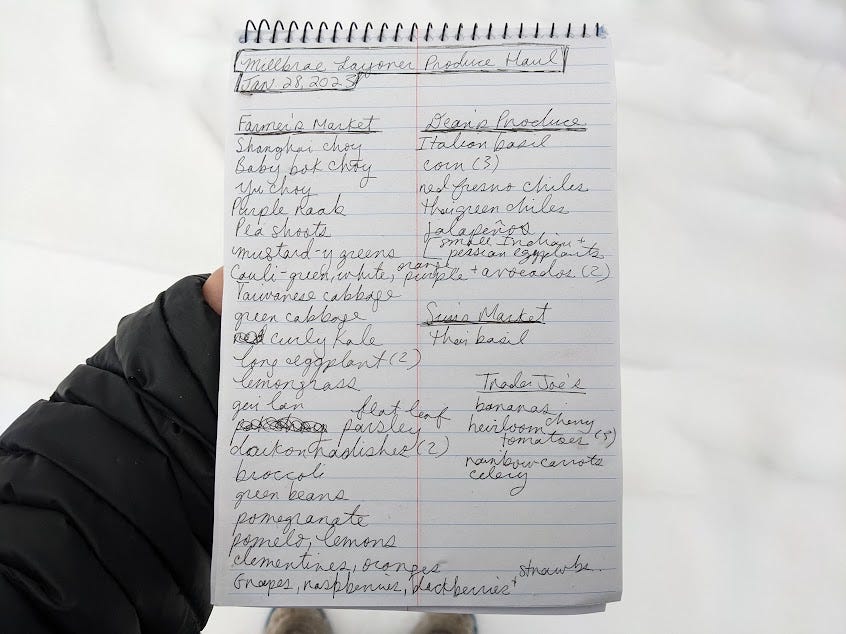 Millbrae Layover Produce Haul
Jan 28, 2023
Farmer's Market
Shanghai choy
Baby bok choy
Yu choy
Purple
Pea shoots
mustard-y greens
Cauli-green, white, orange, purple +
Taiwanese cabbage
green cabbage
curly kale
long eggplant (2)
lemongrass
gai lan
flat leaf
parsley
daikon radishes (2)
broccoli
green beans
pomegranate
pomelo, lemons
clementines, oranges
Grapes, raspberries, blackberries + strawbs.
Dean's Produce
Italian basil
corn (3)
red fresno chiles
thai green chiles
jalapeños
small Indian +
persian eggplants
avocados (2)
Market
thai basil
Trader Joe's
bananas
heirloom cherry
tomatoes (3)
rainbow carrots
celery